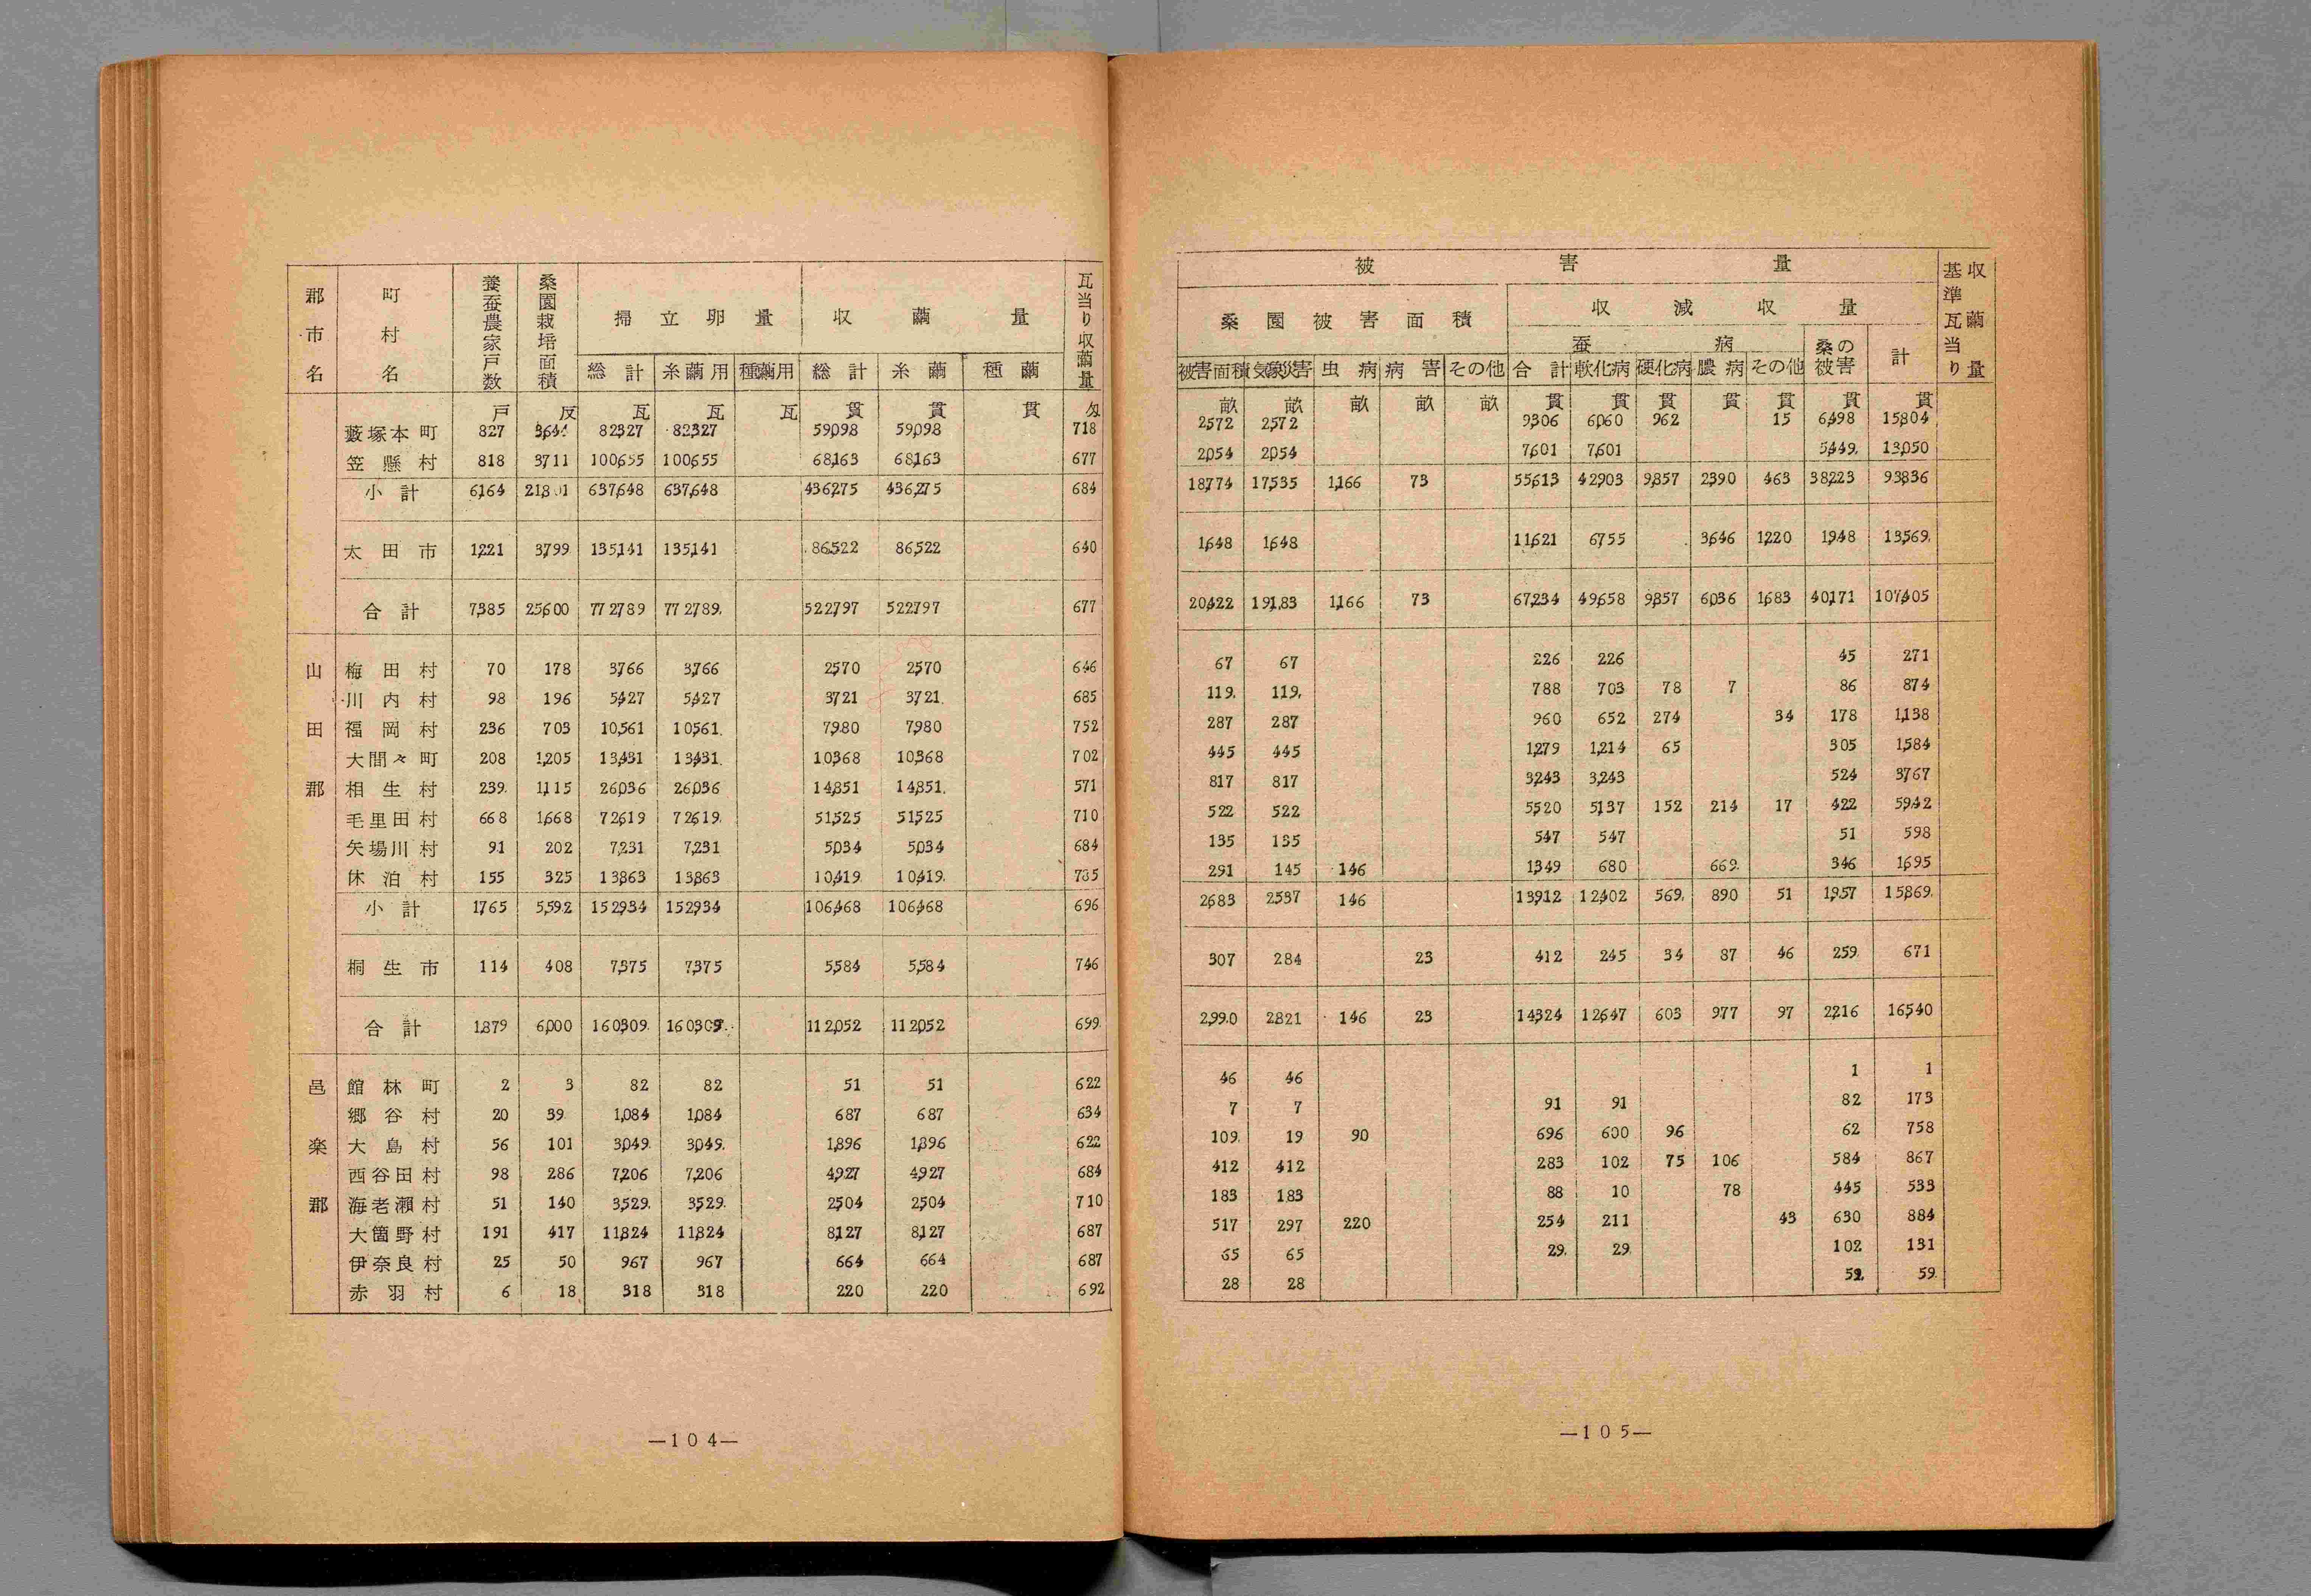 郡市名 町村名 養蚕農家戸数 桑園栽培面積 掃立卵量 収繭量 瓦当り収繭量
総計 糸繭用 種繭用 総計 糸繭 種繭
戸 反 瓦 瓦 瓦 貫 貫 貫 匁
藪塚本町 827 3,644 82,327 82,327 59,098 59,098 718
笠懸村 818 3,711 100,655 100,655 68,163 68,163 677
小計 6,164 637,648 637,648 436,275 436,275 684
太田市 1,221 3,799 135,141 135,141 86,522 86,522 640
合計 7,385 25,600 772,789 772,789 522,797 522,797 677
山田郡
梅田村 70 178 3,766 3,766 2,570 2,570 646
川内村 98 196 5,427 5,427 3,721 3,721 685
福岡村 236 703 10,561 10,561 7,980 7,980 752
大間々町 208 1,205 13,431 13,431 10,368 10,368 702
相生村 239 1,115 26,036 26,036 14,851 14,851 571
毛里田村 668 1,668 72,619 72,619 51,525 51,525 710
矢場川村 91 202 7,231 7,231 5,034 5,034 684
休泊村 155 325 13,863 13,863 10,419 10,419 735
小計 1,765 5,592 152,934 152,934 106,468 106,468 696
桐生市 114 408 7,375 7,375 5,584 5,584 746
合計 1,879 6,000 160,309 160,309 112,052 112,052 699
邑楽郡
館林町 2 3 82 82 51 51 622
郷谷村 20 39 1,084 1,084 687 687 634
大島村 56 101 3,049 3,049 1,896 1,896 622
西谷田村 98 286 7,206 7,206 4,927 4,927 684
海老瀬村 51 140 3,529 3,529 2,504 2,504 710
大箇野村 191 417 11,824 11,824 8,127 8,127 687
伊奈良村 25 50 967 967 664 664 687
赤羽村 6 18 318 318 220 220 692
—104—
被害量 基準瓦当り収繭量
桑園被害面積 収減収量
蚕病 桑の被害 計
被害面積 気象災害 虫病 病害 その他 合計 軟化病 硬化病 膿病 その他
畝 畝 畝 畝 畝 貫 貫 貫 貫 貫 貫 貫
2,572 2,572 9,306 6,060 962 15 6,498 15,804
2,054 2,054 7,601 7,601 5,449 13,050
18,774 17,535 1,166 73 55,613 42,903 9,857 2,390 463 38,223 93,836
1,648 1,648 11,621 6,755 3,646 1,220 1,948 13,569
20,422 19,183 1,166 73 67,234 49,658 9,857 6,036 1,683 40,171 107,405
67 67 226 226 45 271
119 119 788 703 78 7 86 874
287 287 960 652 274 34 178 1,138
445 445 1,279 1,214 65 305 1,584
817 817 3,243 3,243 524 3,767
522 522 5,520 5,137 152 214 17 422 5,942
135 135 547 547 51 598
291 145 146 1,349 680 669 346 1,695
2,683 2,537 146 13,912 12,402 569 890 51 1,957 15,869
307 284 23 412 245 34 87 46 259 671
2,990 2,821 146 23 14,324 12,647 603 977 97 2,216 16,540
46 46 1 1
7 7 91 91 82 173
109 19 90 696 600 96 62 758
412 412 283 102 75 106 584 867
183 183 88 10 78 445 533
517 297 220 254 211 43 630 884
65 65 29 29 102 131
28 28 59 59
—105—